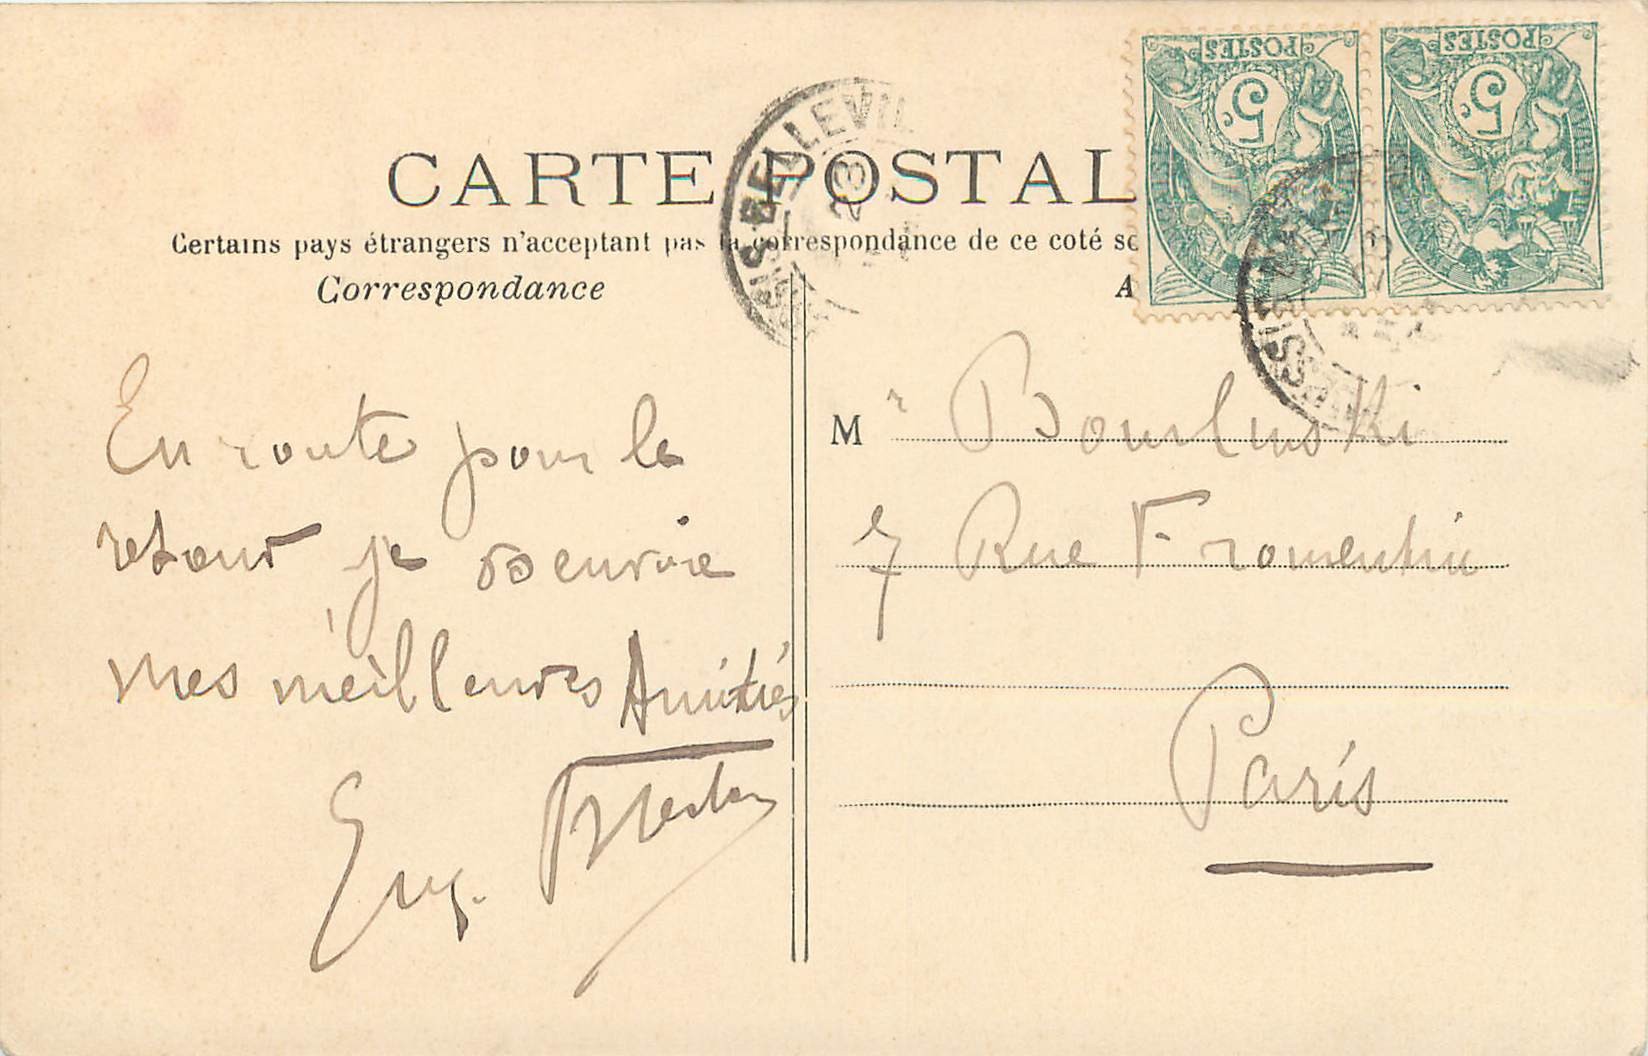 CARTE POSTAL
Certains pays étrangers n'acceptent pas la correspondance de ce coté
Correspondance
A
POSTES
5c
POSTES
5c
BELLEVIL
En route pour le
retour je vs envoie
mes meilleures Amitiés
Eug.
Mr
7 Rue Fromentin
Paris